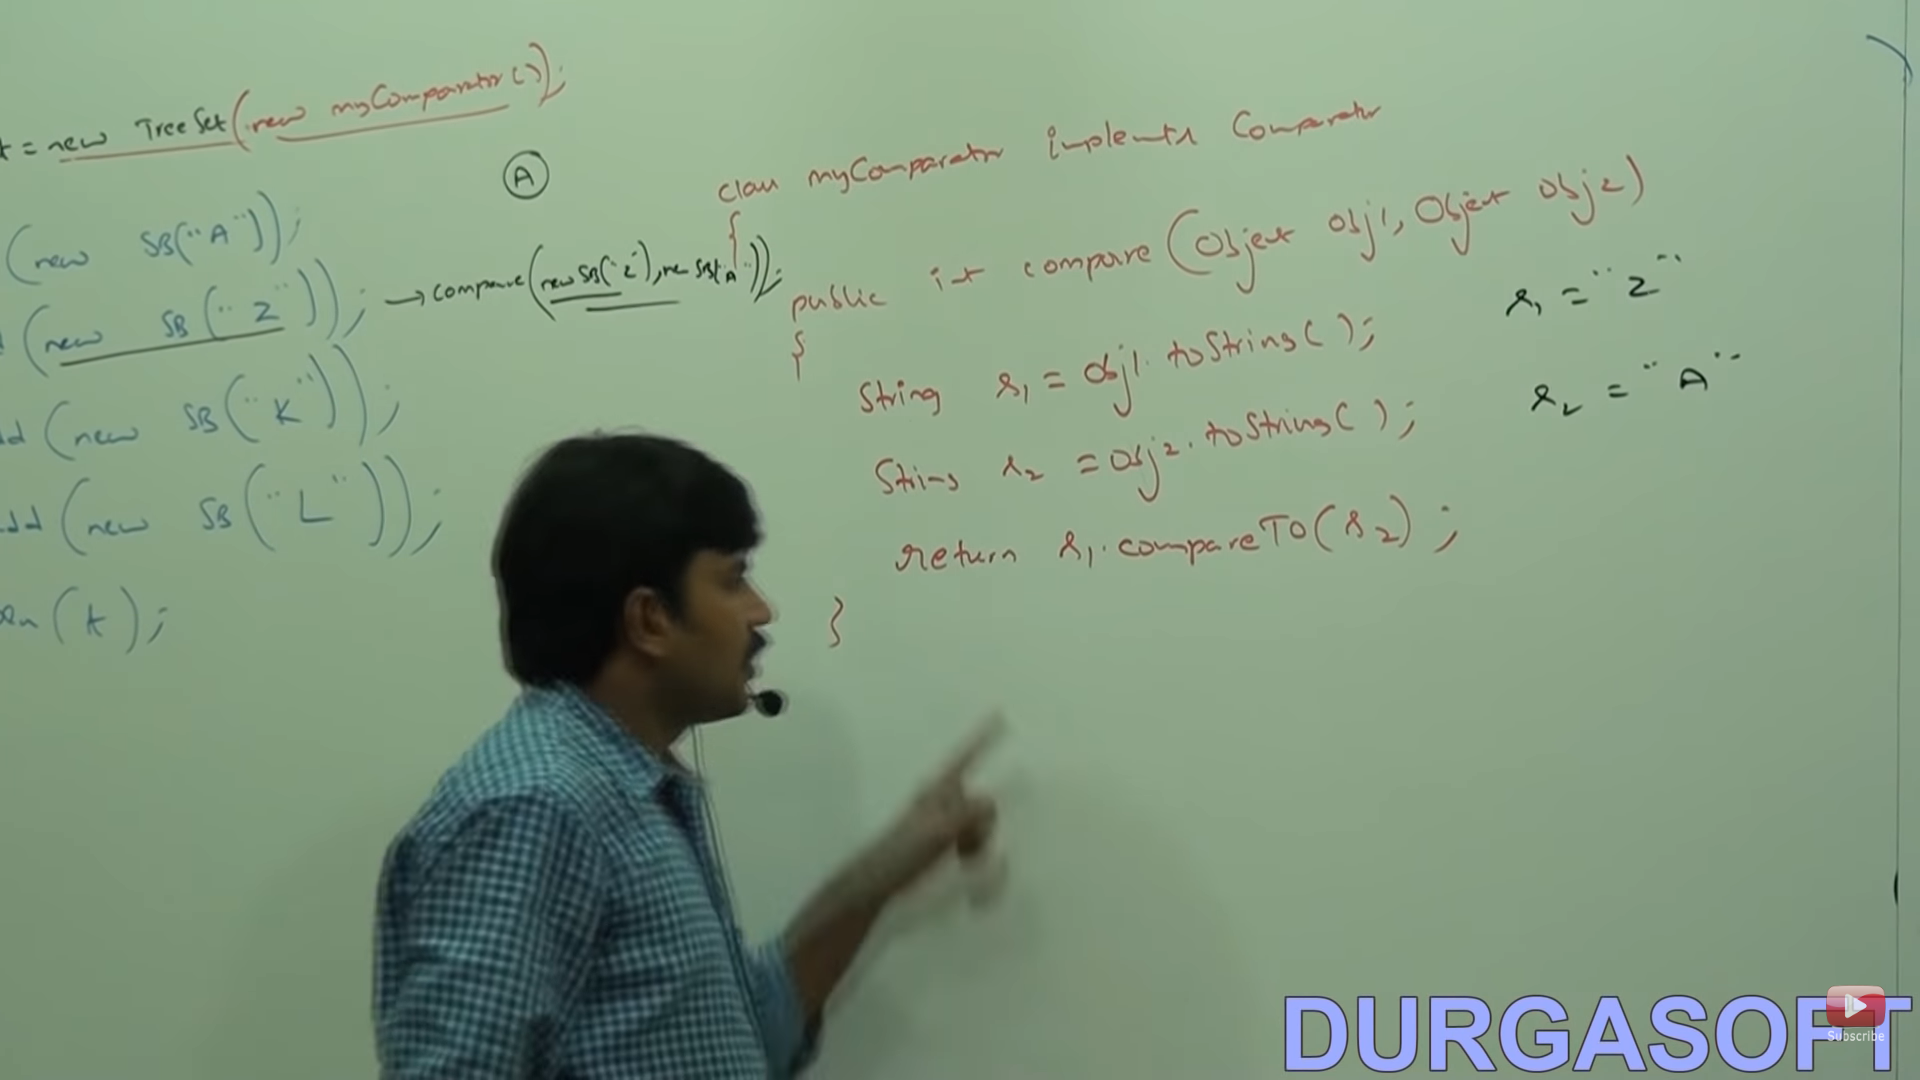 t = new TreeSet(new myComparator());
(new SB("A"));
(new SB("Z"));
dd (new SB("K"));
dd (new SB("L"));
ln(t);
A
→ compare(new SB("Z"), new SB("A"));
class myComparator implements Comparator
{
public int compare(Object obj1, Object obj2)
{
String s1 = obj1.toString();
String s2 = obj2.toString();
return s1.compareTo(s2);
}
s1 = "Z"
s2 = "A"
DURGASOFT
Subscribe